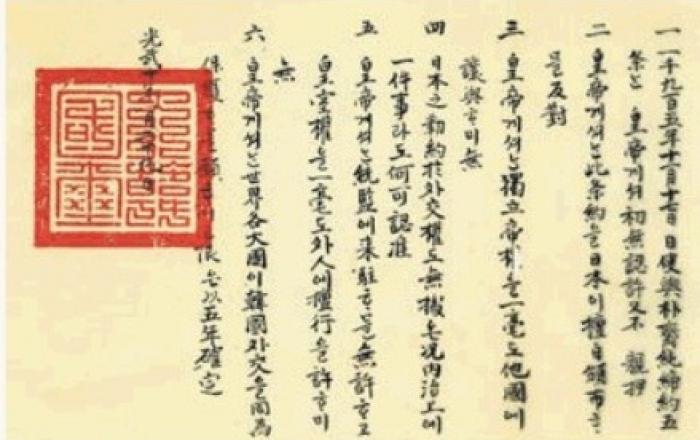 一 一千九百五年十一月十七日日使與朴齊純締約五
条と 皇帝게셔初無認許又不 親押
二 皇帝게셔는此条約을日本이擅自頒布ᄒᆞ
믈反對
三 皇帝게셔는獨立帝權을一毫도他國에
讓與ᄒᆞ미無
四 日本之勒約於外交權도無據온況內治上에
一件事라도何可認准
五 皇帝게셔는統監에來駐ᄒᆞ믈無許ᄒᆞ고
皇室權을一毫도外人에擅行을許ᄒᆞ미
無
六 皇帝게셔는世界各大國이韓國外交을同為
保護 願 限은以五年確定
光武十年一月二十九日